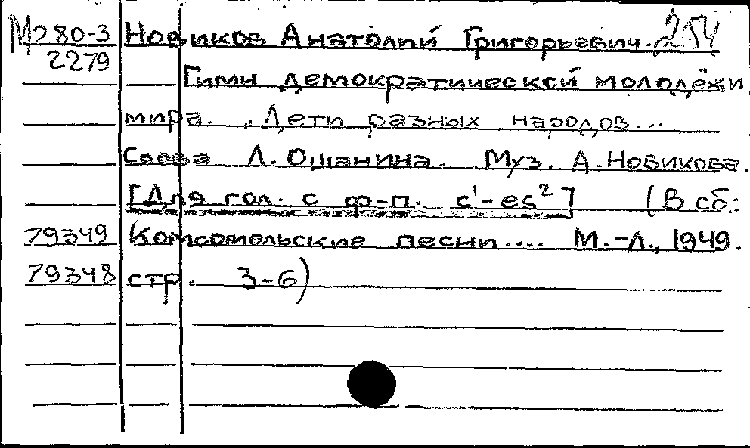 М280-3 Новиков Анатолий Григорьевич. 254
2279
Гимн демократической молодёжи
мира. „Дети разных народов...
Слова Л. Ошанина. Муз. А. Новикова.
[Для гол. с ф-п. c¹-es²] (В сб.:
79349 Комсомольские песни.... М.-Л., 1949.
79348 стр. 3-6)